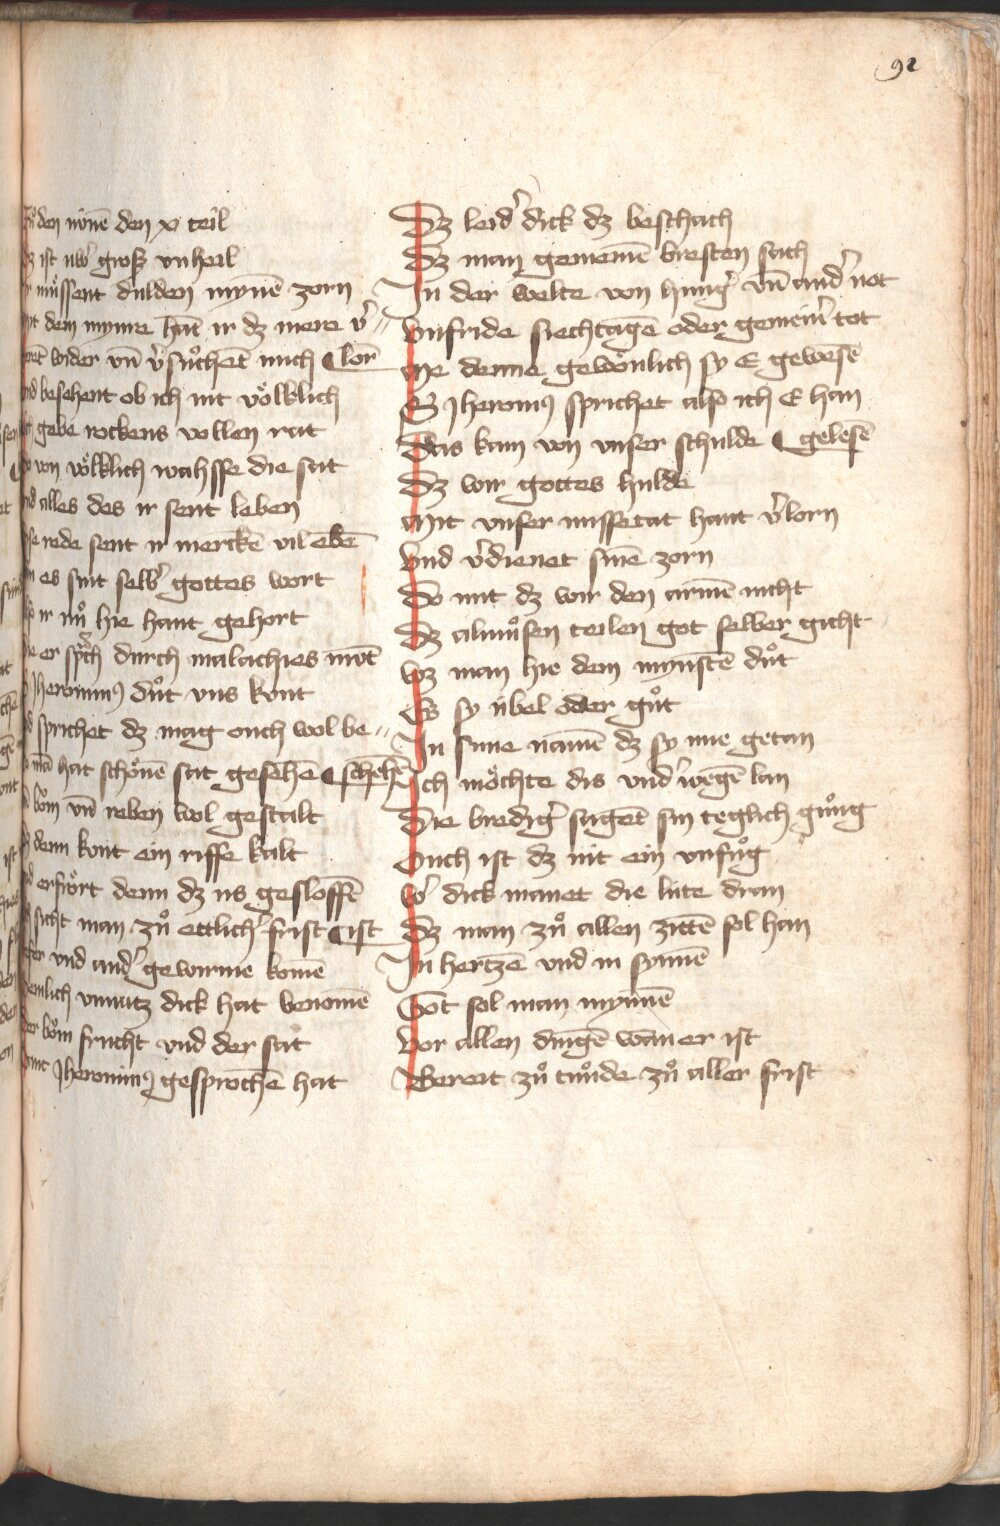 92
den núnē den x teil
ist uwʼ grosz vnheil
müssent dulden mynē zorn
dem mynre hāt ir dz mere vʼ〃
wider vn̄ vʼsuͦchent mich ¶ lorn
besehent ob ich nit voͤlklich
gebe rockens vollen rat
von voͤlklich wahsse die sat
alles des ir sent leben
rede sent ir merckē vil ebē
es sint selbʼ gottes wort
ir nuͦ hie hant gehort
er sprach durch malachies mūt
Jheronimus duͦt vns kont
sprichet dz mag ouch wol be〃
hat schoͤnē sat gesehē ¶ schehē
boͤm vn̄ reben wol gestalt
denn kont ein riffe kalt
erfroͤrt denn dz us gesloffē
sicht man zuͦ ettlichʼ frist ¶ ist
vnd andʼ gewúrme komē
vnnutz dick hat benomē
boͤm frucht vnd der sat
Jheronimus gesprochē hat
Dz leidʼ dick dz beschach
Dz man gemeinē bresten sach
In der welte von hungʼ vn̄ andʼ not
Vnfride siechtagē oder gemeinʼ tot
Me denne gewoͤnlich sy E gewesē
S Jheronimus sprichet also ich E han
Das kam von vnser schulde ¶ gelesē
Dz wir gottes hulde
Mit vnser missetat hant vʼlorn
Vnd vʼdienet sinē zorn
Do mit dz wir den armē nicht
Dz almuͦsen teilen got selber gicht
Wz man hie dem mynstē duͦt
Es sy úbel oder guͦt
In sime namē dz sy ime getan
Ich moͤchte dis vndʼwegē lan
Die bredigʼ sagēt sin teglich gnuͦg
Ouch ist dz nit ein vnfuͦg
Wʼ dick manet die lúte dran
Dz man zuͦ allen zittē sol han
In hertzē vnd in synnē
Got sol man mynnē
Vor allen dingē wan er ist
Bereit zuͦ tuͦnde zuͦ aller frist